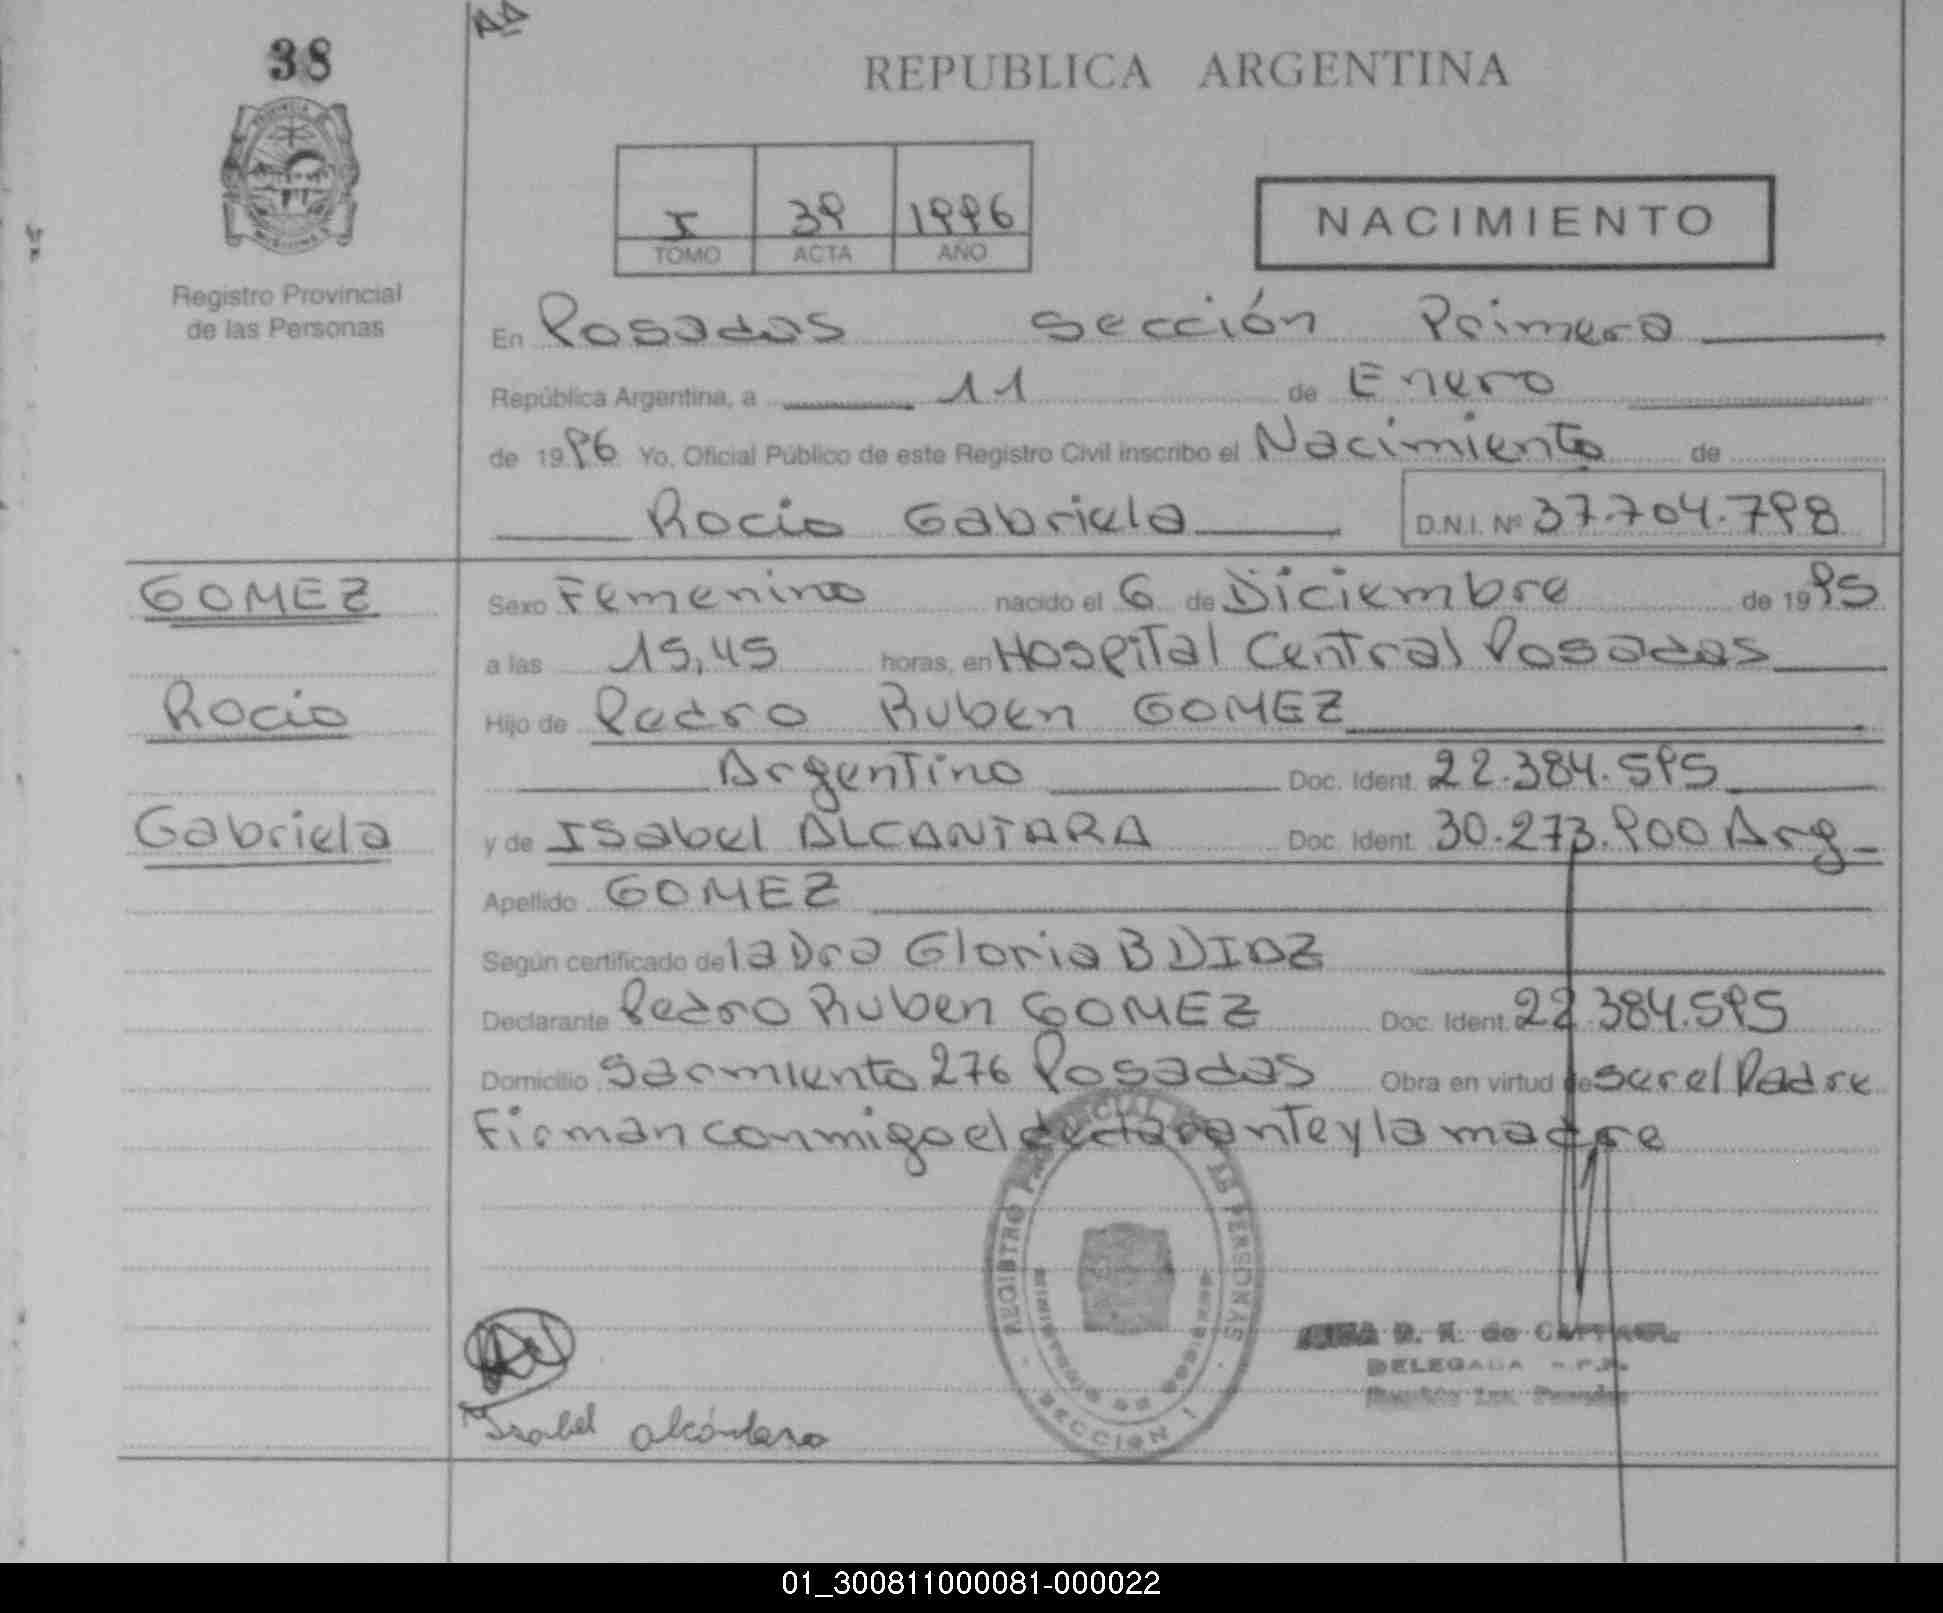 38
REPUBLICA ARGENTINA
I 39 1996
TOMO ACTA AÑO
NACIMIENTO
Registro Provincial
de las Personas
En Posadas Sección Primera
República Argentina, a 11 de Enero
de 1996 Yo, Oficial Público de este Registro Civil inscribo el Nacimiento de
Rocio Gabriela D.N.I. Nº 37.704.798
GOMEZ
Rocio
Gabriela
Sexo Femenino nacido el 6 de Diciembre de 1995
a las 15,45 horas, en Hospital Central Posadas
Hijo de Pedro Ruben GOMEZ
Argentino Doc. Ident. 22.384.595
y de ISabel ALCANTARA Doc. Ident. 30.273.900 Arg
Apellido GOMEZ
Según certificado de la Dra Gloria B DIAZ
Declarante Pedro Ruben GOMEZ Doc. Ident. 22.384.595
Domicilio Sarmiento 276 Posadas Obra en virtud de ser el Padre
Firman conmigo el declarante y la madre
REGISTRO PROVINCIAL DE PERSONAS
MINISTERIO DE GOBIERNO
SECCION 1
DELEGADA
Isabel alcántara
01_300811000081-000022